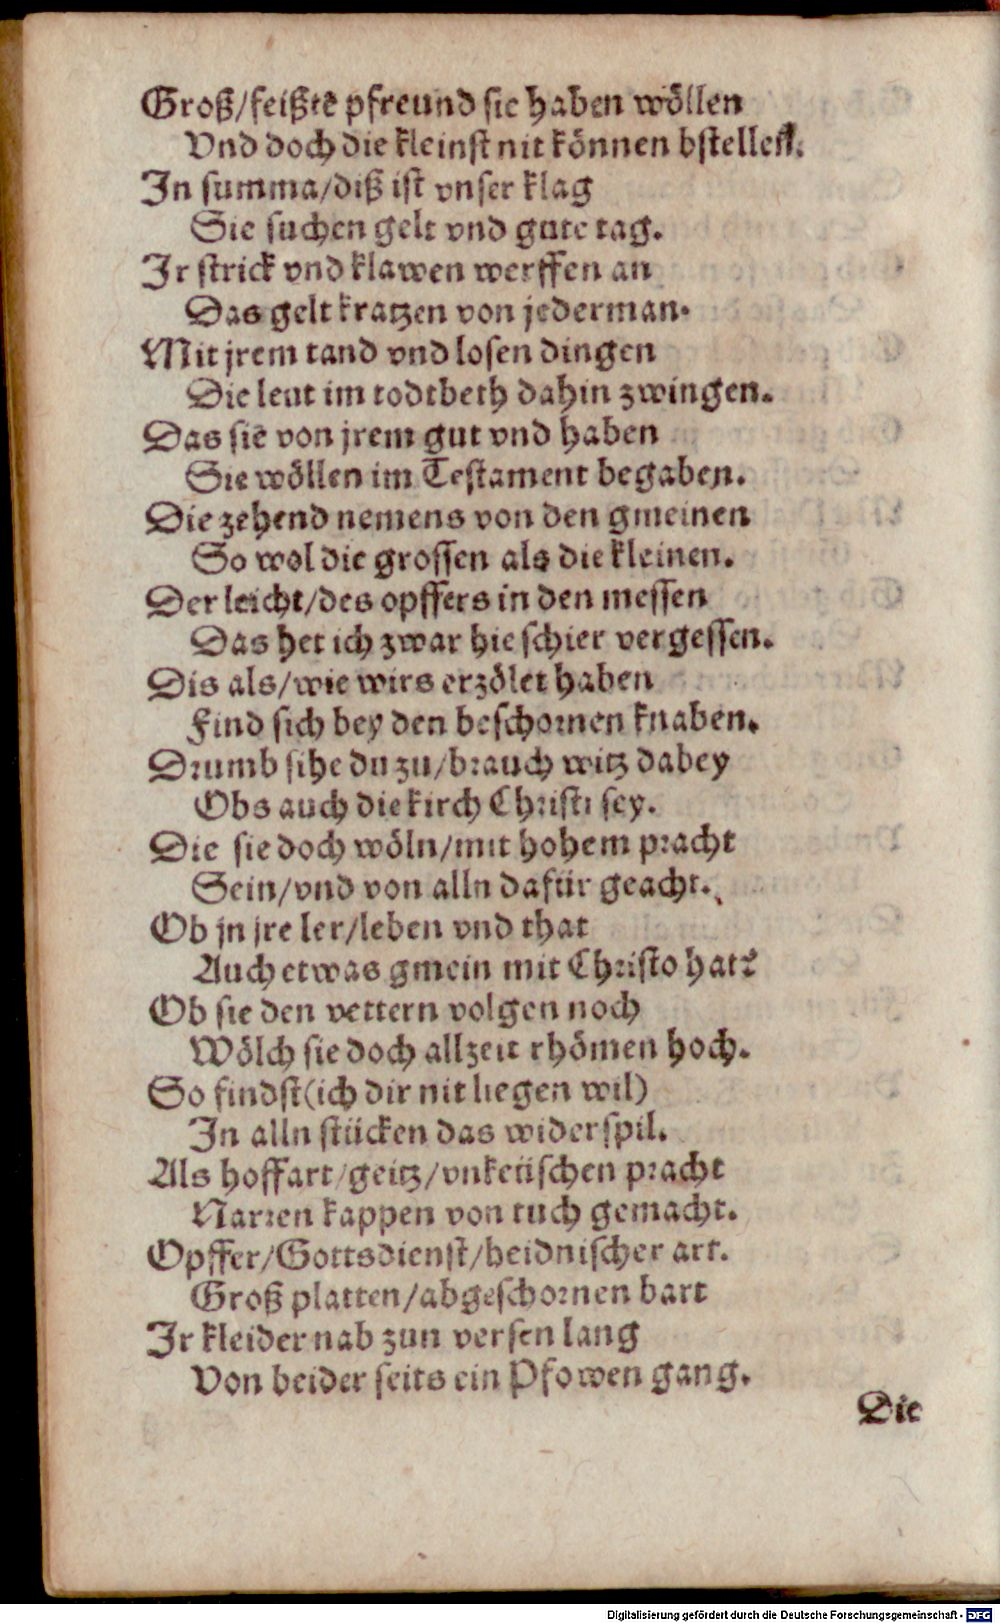 Groß/feißte pfreund sie haben wöllen
Vnd doch die kleinst nit können bstellen.
In summa/diß ist vnser klag
Sie suchen gelt vnd gute tag.
Ir strick vnd klawen werffen an
Das gelt kratzen von jederman.
Mit jrem tand vnd losen dingen
Die leut im todtbeth dahin zwingen.
Das sie von jrem gut vnd haben
Sie wöllen im Testament begaben.
Die zehend nemens von den gmeinen
So wol die grossen als die kleinen.
Der leicht/des opffers in den messen
Das het ich zwar hie schier vergessen.
Dis als/wie wirs erzölet haben
Find sich bey den beschornen knaben.
Drumb sihe du zu/brauch witz dabey
Obs auch die kirch Christi sey.
Die sie doch wöln/mit hohem pracht
Sein/vnd von alln dafür geacht.
Ob jn jre ler/leben vnd that
Auch etwas gmein mit Christo hat?
Ob sie den vettern volgen noch
Wölch sie doch allzeit rhömen hoch.
So findst(ich dir nit liegen wil)
In alln stücken das widerspil.
Als hoffart/geitz/vnkeüschen pracht
Narren kappen von tuch gemacht.
Opffer/Gottsdienst/heidnischer art.
Groß platten/abgeschornen bart
Ir kleider nab zun versen lang
Von beider seits ein Pfowen gang.
Die
Digitalisierung gefördert durch die Deutsche Forschungsgemeinschaft - DFG